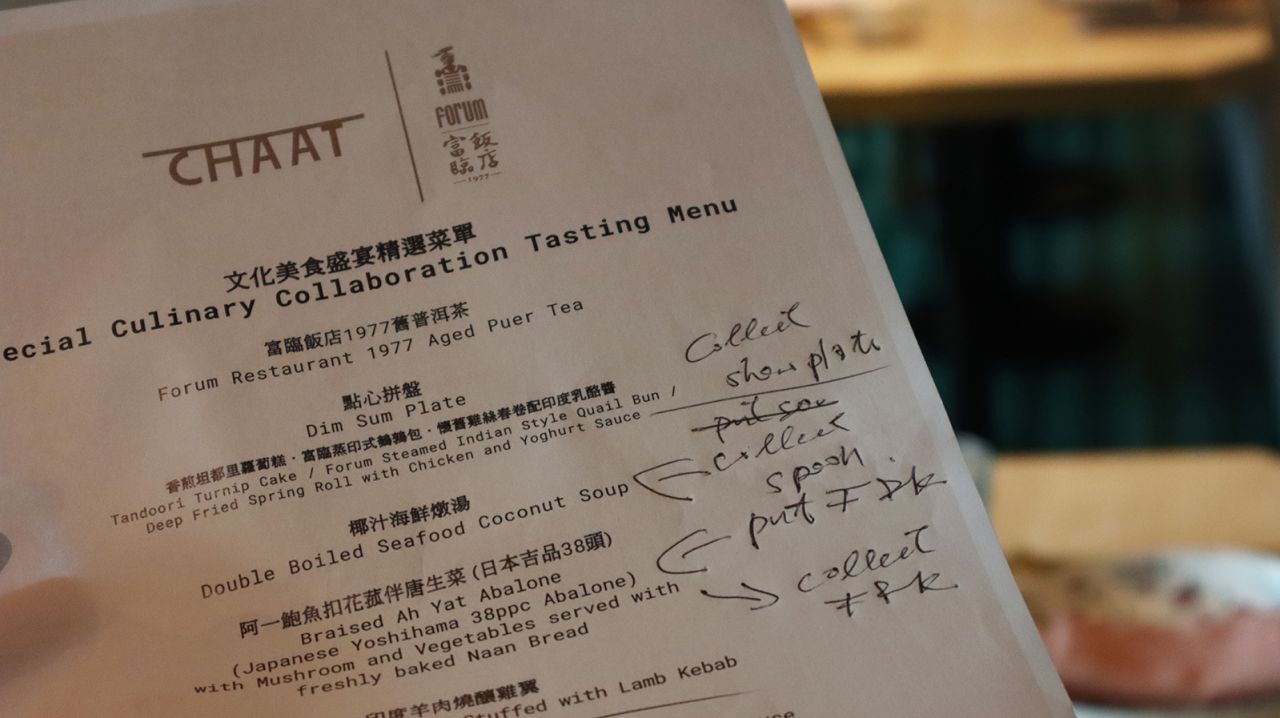 CHAAT
forum
富臨飯店
1977
文化美食盛宴精選菜單
ecial Culinary Collaboration Tasting Menu
富臨飯店1977舊普洱茶
Forum Restaurant 1977 Aged Puer Tea
點心拼盤
Dim Sum Plate
香煎坦都里蘿蔔糕 · 富臨蒸印式鵪鶉包 · 懷舊雞絲春卷配印度乳酪醬
Tandoori Turnip Cake / Forum Steamed Indian Style Quail Bun /
Deep Fried Spring Roll with Chicken and Yoghurt Sauce
Collect
show plate
collect
spoon.
put F & K
collect
F & K
椰汁海鮮燉湯
Double Boiled Seafood Coconut Soup
阿一鮑魚扣花菰伴唐生菜 (日本吉品38頭)
Braised Ah Yat Abalone
(Japanese Yoshihama 38ppc Abalone)
with Mushroom and Vegetables served with
freshly baked Naan Bread
印度羊肉燒釀雞翼
Stuffed with Lamb Kebab